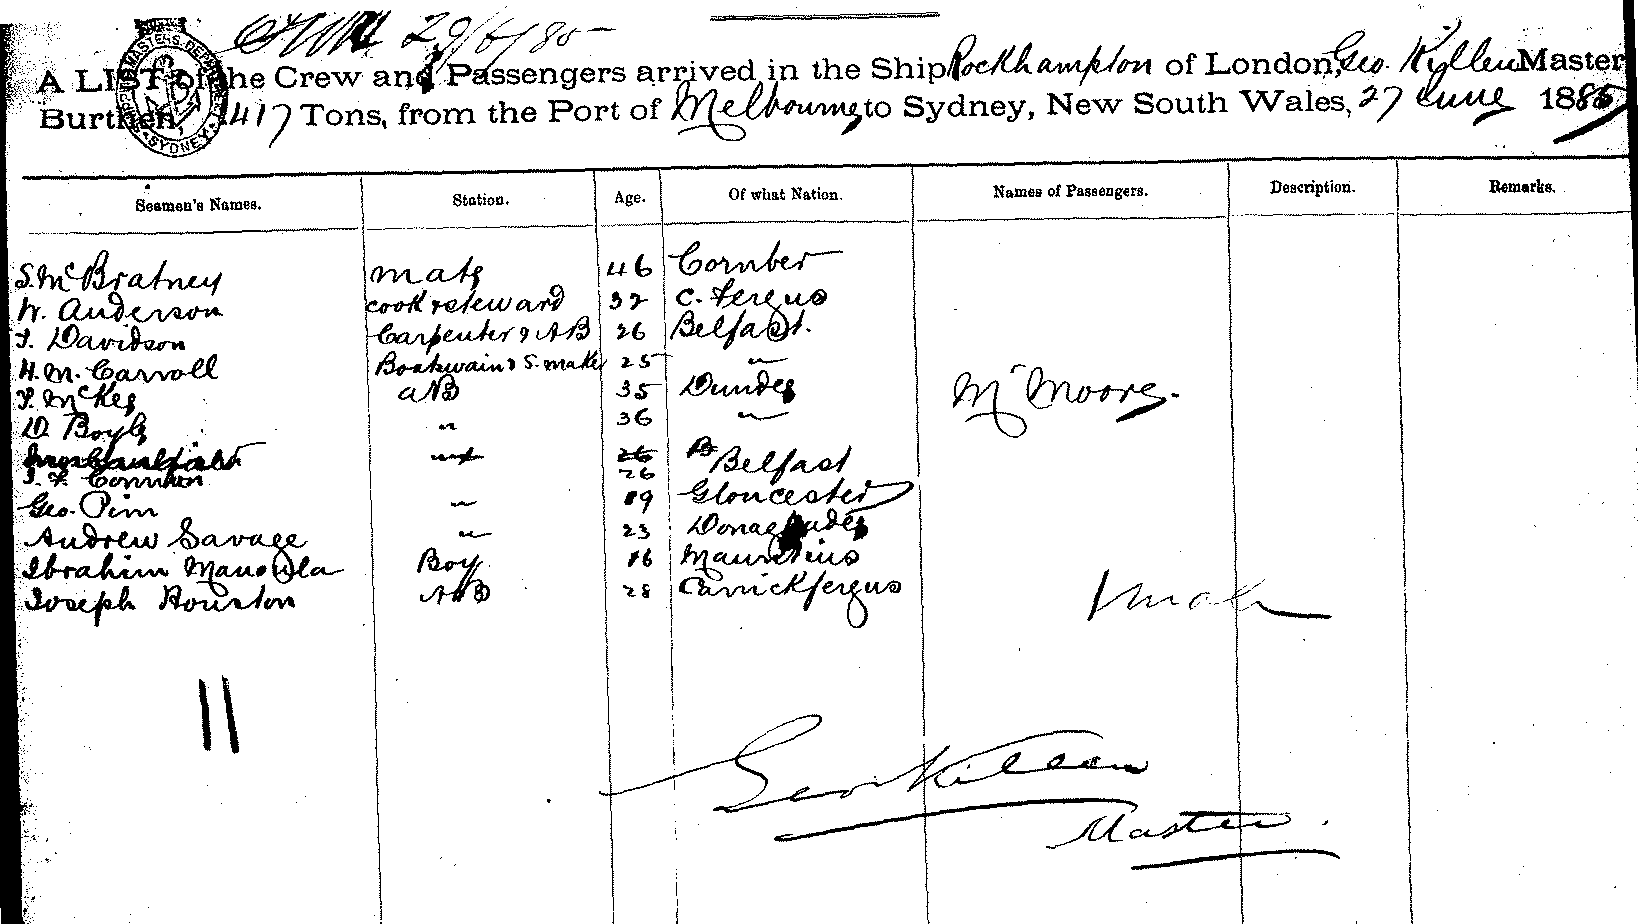 29/6/85
A LIST of the Crew and Passengers arrived in the Ship Rockhampton of London, Geo. Killen Master
Burthen, 1417 Tons, from the Port of Melbourne to Sydney, New South Wales, 27 June 1885
Seamen's Names. Station. Age. Of what Nation. Names of Passengers. Description. Remarks.
S. McBratney mate 46 Comber
W. Anderson cook & steward 32 C. Fergus
J. Davidson Carpenter & AB 26 Belfast.
H. M. Carroll Boatswain & S. make 25 "
J. McKee AB 35 Dundee Mr Moore.
D. Boyle " 36 "
" 26 Belfast
26
Geo. Pim " 19 Gloucester
Andrew Savage " 23 Donaghadee
Ibrahim Boy 16 Mauritius
Joseph Houston AB 28 Carrickfergus
1 male
11
Geo Killen
Master.